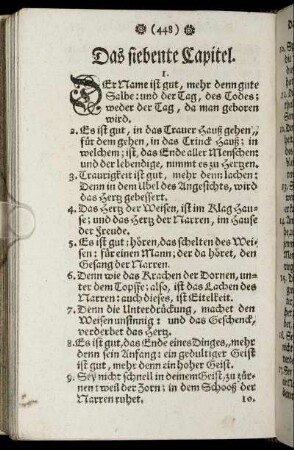 (448)
Das siebente Capitel.
1.
DEr Name ist gut, mehr denn gute
Salbe: und der Tag, des Todes;
weder der Tag, da man geboren
wird.
2. Es ist gut, in das Trauer Hauß gehen,
für dem gehen, in das Trinck Hauß; in
welchem; ist, das Ende aller Menschen:
und der lebendige, nimmt es zu Hertzen.
3. Traurigkeit ist gut, mehr denn lachen:
Denn in dem Ubel des Angesichts, wird
das Hertz gebessert.
4. Das Hertz der Weisen, ist im Klag Hau-
se; und das Hertz der Narren, im Hause
der Freude.
5. Es ist gut: hören, das schelten des Wei-
sen: für einem Mann; der da höret, den
Gesang der Narren.
6. Denn wie das Krachen der Dornen, un-
ter dem Topffe; also, ist das Lachen des
Narren: auch dieses, ist Eitelkeit.
7. Denn die Unterdrückung, machet den
Weisen unsinnig: und das Geschenck,
verderbet das Hertz.
8. Es ist gut, das Ende eines Dinges, mehr
denn sein Anfang: ein gedultiger Geist
ist gut, mehr denn ein hoher Geist.
9. Sey nicht schnell in deinem Geist, zu zür-
nen: weil der Zorn; in dem Schooß der
Narren ruhet.
10.